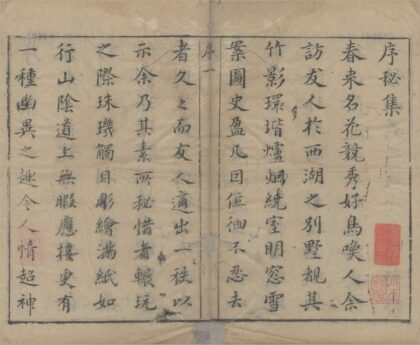 序秘集
春來名花競秀好鳥喚人余
訪友人於西湖之別墅覩其
竹影環堦爐烟繞室明窓雪
案圖史盈几因低徊不忍去
序一
者久之而友人適出一秩以
示余乃其素所秘惜者輾玩
之際珠璣觸目彫繪滿紙如
行山陰道上無暇應接更有
一種幽異之趣令人情超神